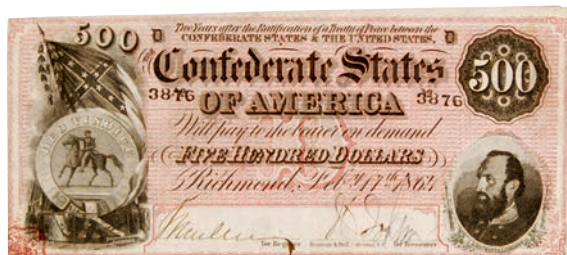 Two Years after the Ratification of a Treaty of Peace between the
CONFEDERATE STATES & THE UNITED STATES,
500 D D
the
Confederate States
500
3876 3876
OF AMERICA
Will pay to the bearer on demand
FIVE HUNDRED DOLLARS
Richmond, Feby. 17th 1864
for Register for Treasurer